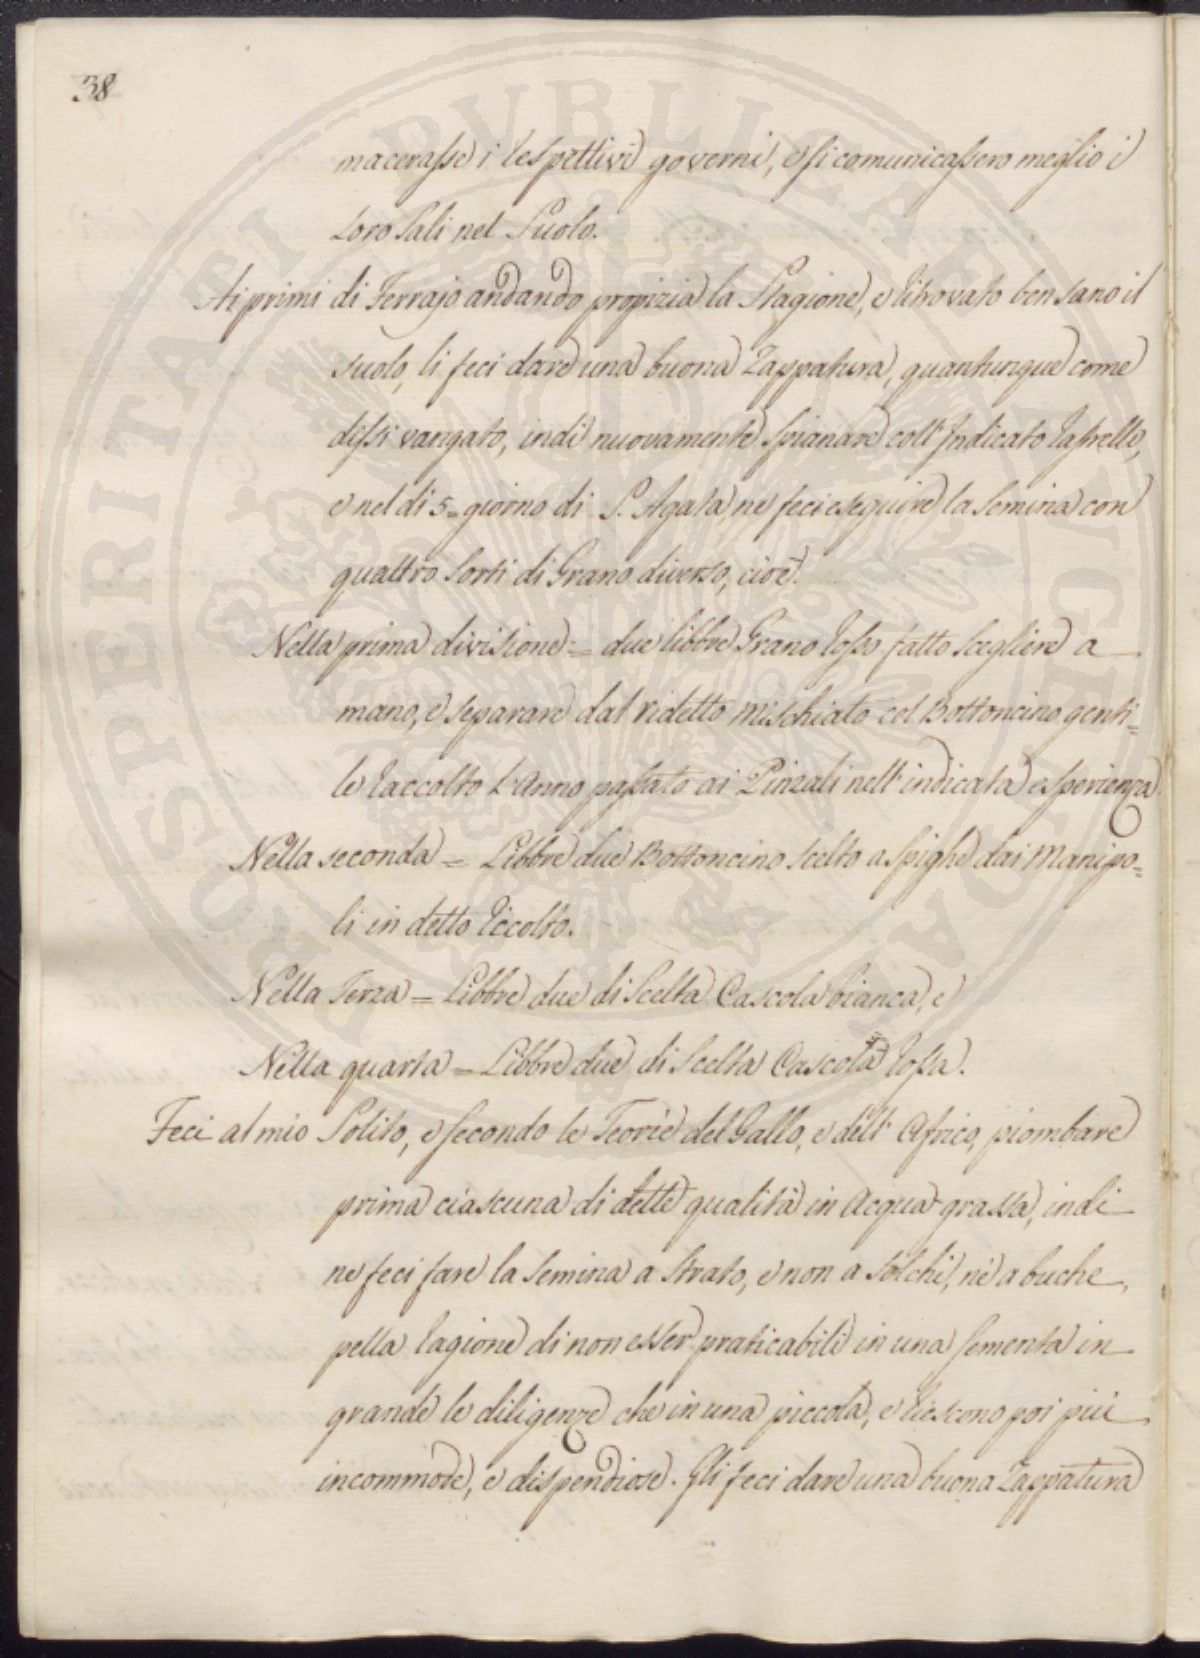 38
macerasse i respettivi governi, e si comunicassero meglio i
loro Sali nel Suolo.
Ai primi di Ferrajo andando propizia la Stagione, e ritrovato ben sano il
suolo, li feci dare una buona Zappatura, quantunque come
dissi vangato, indi nuovamente spianare coll'Indicato Rastrello,
e nel di 5= giorno di S. Agata, ne feci eseguire la Semina con
quattro Sorti di Grano diverso, cioè.
Nella prima divisione = due libbre Grano rosso fatto scegliere a
mano, e separare dal ridetto mischiato col Bottoncino genti=
le raccolto l'Anno passato ai Pinzali nell'indicata esperienza
Nella seconda = Libbre due Bottoncino scelto a spighe dai Manipo=
li in detto Ricolto.
Nella Terza = Libbre due di Scelta Cascola bianca, e
Nella quarta = Libbre due di Scelta Cascola rossa.
Feci al mio Solito, e secondo le Teorie del Gallo, e dell'Africo, piombare
prima ciascuna di dette qualità in Acqua grassa, indi
ne feci fare la Semina a Strato, e non a Solchi, nè a buche,
pella ragione di non esser praticabili in una sementa in
grande le diligenze che in una piccola, e riescono poi più
incommode, e dispendiose. Gli feci dare una buona Zappatura
PROSPERITATI PVBLICAE AVGENDAE